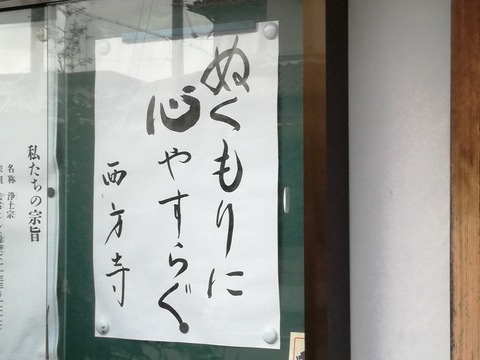 ぬくもりに
心やすらぐ
西方寺
私たちの宗旨
名称 浄土宗